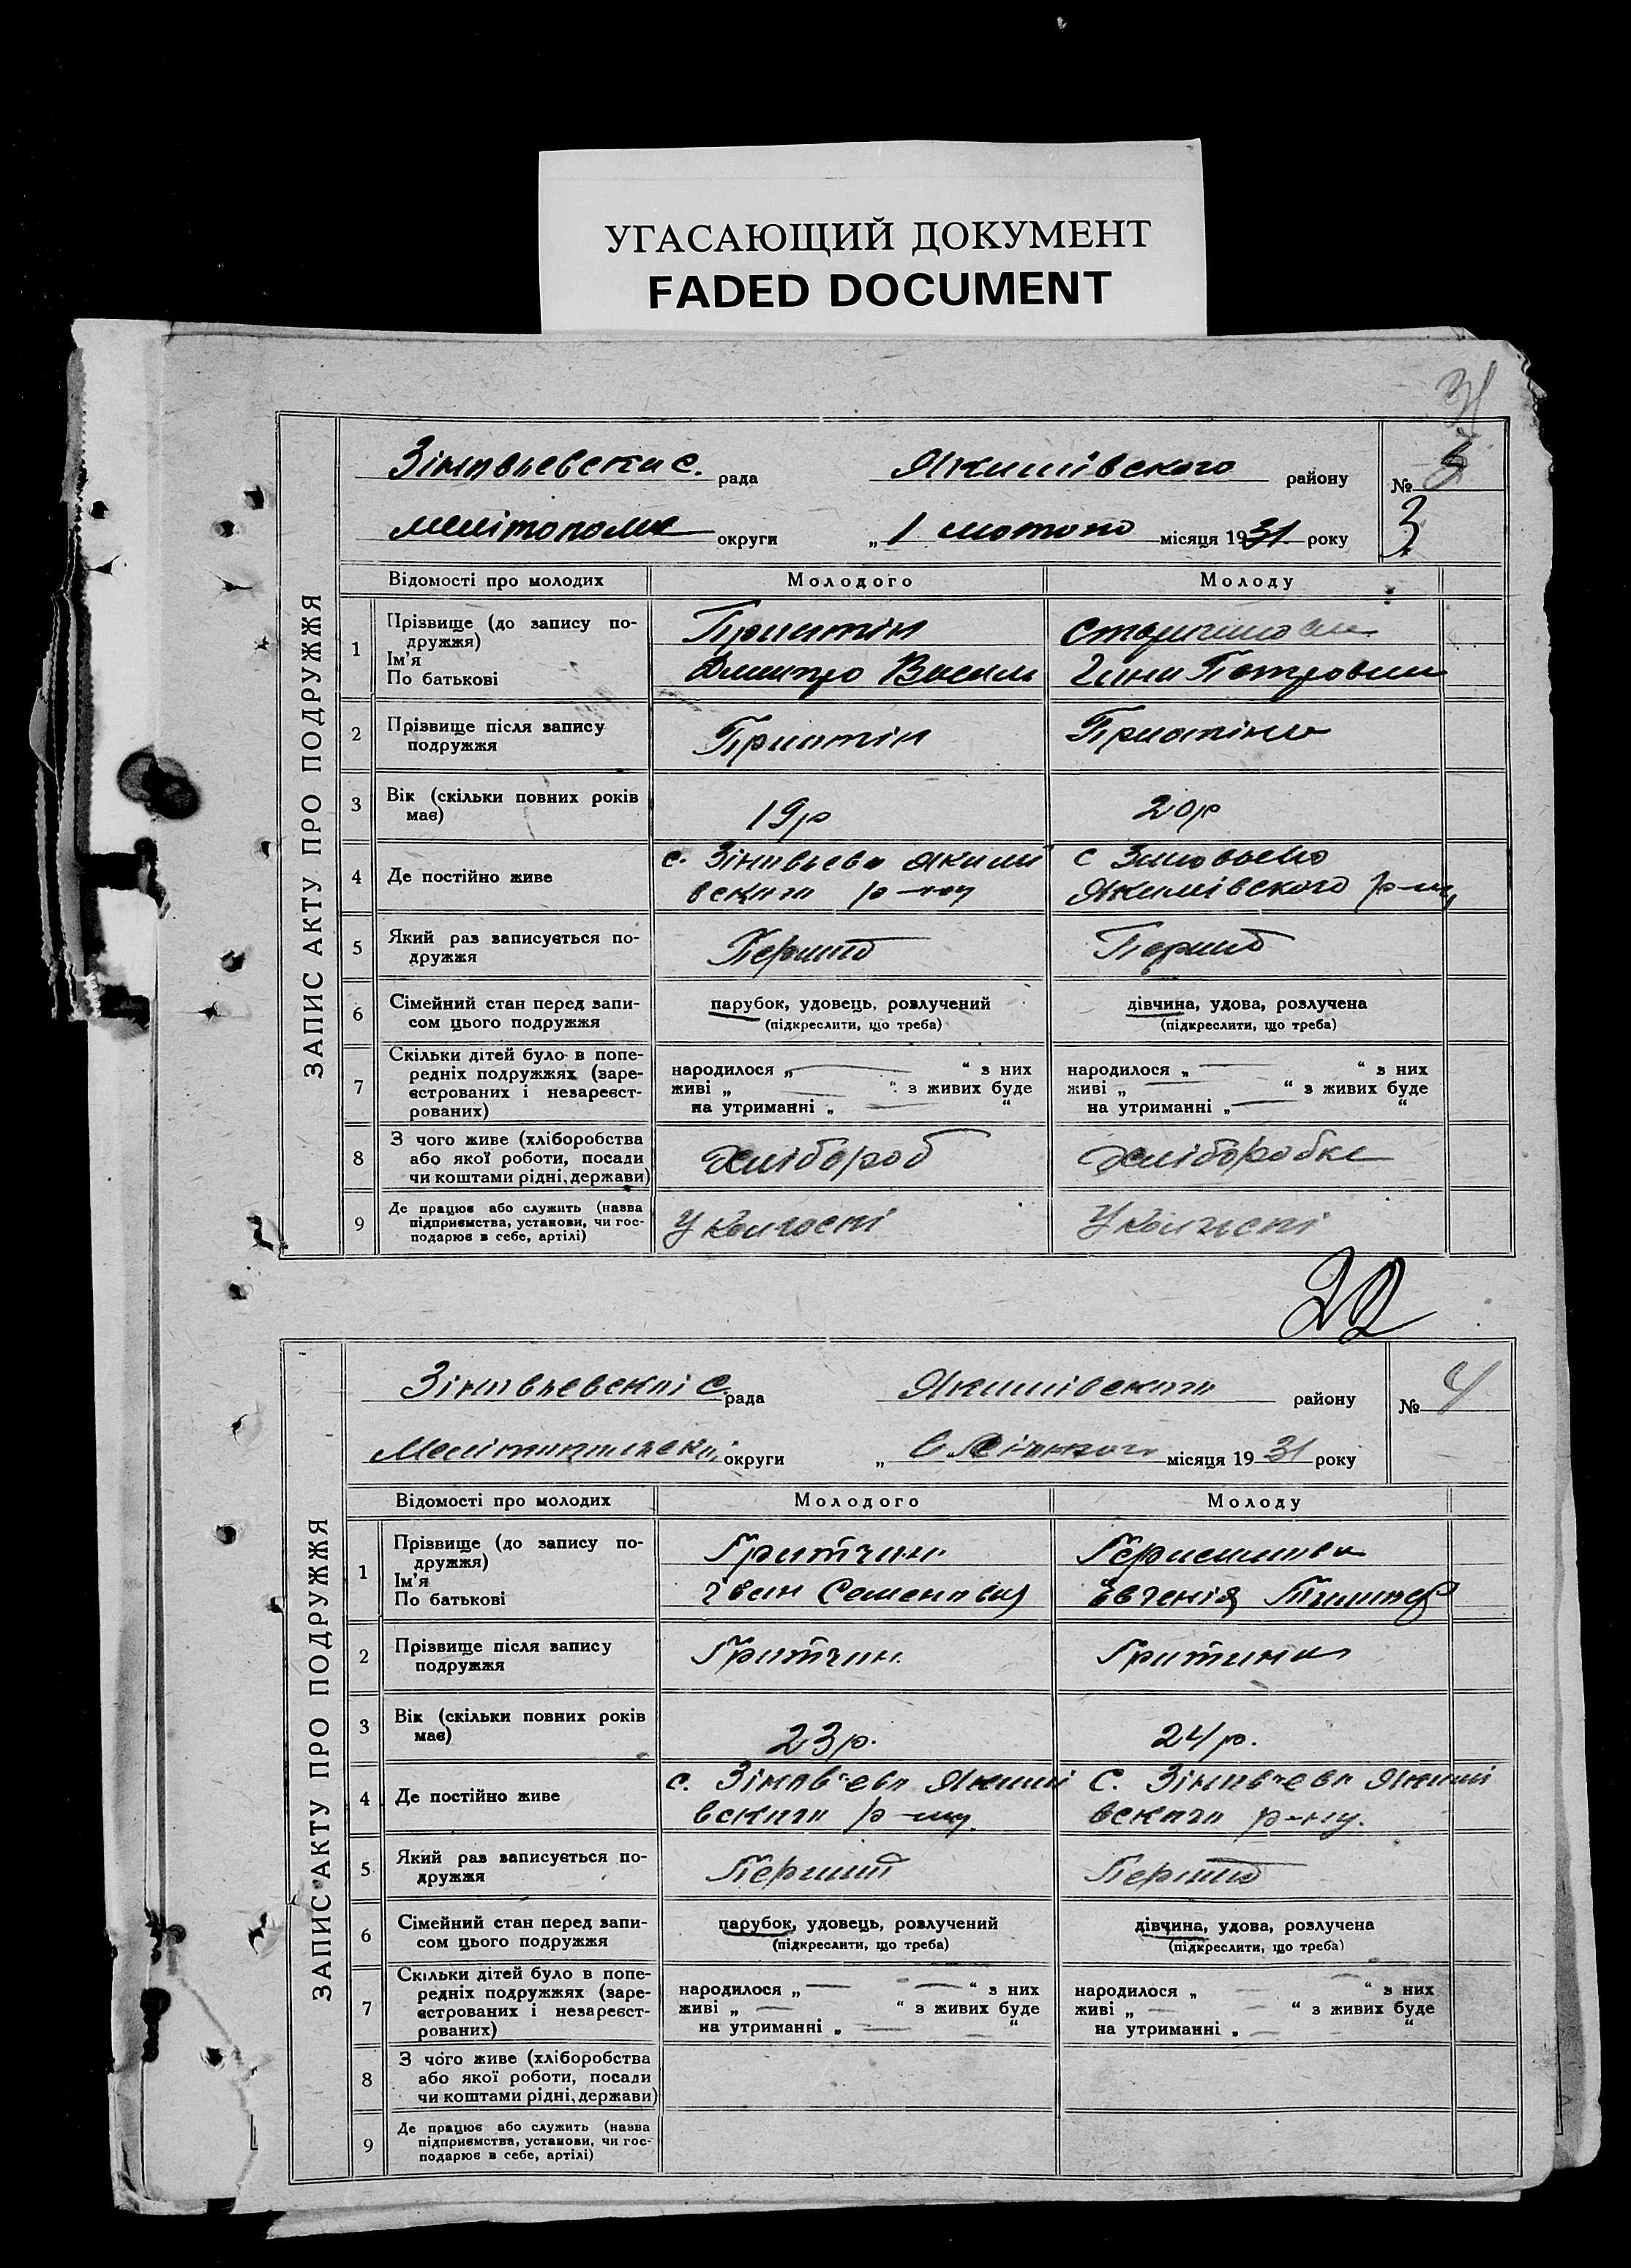 УГАСАЮЩИЙ ДОКУМЕНТ
FADED DOCUMENT
31
ЗАПИС АКТУ ПРО ПОДРУЖЖЯ
рада Якимівского району № 3
округи „ 1 лютого місяця 1931 року 3
Відомості про молодих Молодого Молоду
1 Прізвище (до запису подружжя)
Ім'я
По батькові
Дмитро Василь
2 Прізвище після запису подружжя
3 Вік (скільки повних років має) 19р 20р
4 Де постійно живе
с. Зіновьево Якимі с Зиновьево
вского р-ну Якимівского р-ну
5 Який раз записується подружжя Перший Перший
6 Сімейний стан перед записом цього подружжя
парубок, удовець, розлучений дівчина, удова, розлучена
(підкреслити, що треба) (підкреслити, що треба)
7 Скільки дітей було в попередніх подружжях (зареєстрованих і незареєстрованих)
народилося „ — “ з них народилося „ — “ з них
живі „ — “ з живих буде живі „ — “ з живих буде
на утриманні „ — “ на утриманні „ — “
8 З чого живе (хліборобства або якої роботи, посади чи коштами рідні, держави) Хлібороб Хліборобка
9 Де працює або служить (назва підприємства, установи, чи господарює в себе, артілі) У колгоспі У колгоспі
22
ЗАПИС АКТУ ПРО ПОДРУЖЖЯ
рада Якимівского району № 4
округи „ місяця 1931 року
Відомості про молодих Молодого Молоду
1 Прізвище (до запису подружжя)
Ім'я
По батькові
Іван Семенович Евгенія
2 Прізвище після запису подружжя
3 Вік (скільки повних років має) 23р. 24р.
4 Де постійно живе
с. Зіновʼево Якимі С. Зіновʼево Якимі
вского р-ну. вского р-ну.
5 Який раз записується подружжя Перший Перший
6 Сімейний стан перед записом цього подружжя
парубок, удовець, розлучений дівчина, удова, розлучена
(підкреслити, що треба) (підкреслити, що треба)
7 Скільки дітей було в попередніх подружжях (зареєстрованих і незареєстрованих)
народилося „ — “ з них народилося „ — “ з них
живі „ — “ з живих буде живі „ — “ з живих буде
на утриманні „ — “ на утриманні „ — “
8 З чого живе (хліборобства або якої роботи, посади чи коштами рідні, держави)
9 Де працює або служить (назва підприємства, установи, чи господарює в себе, артілі)